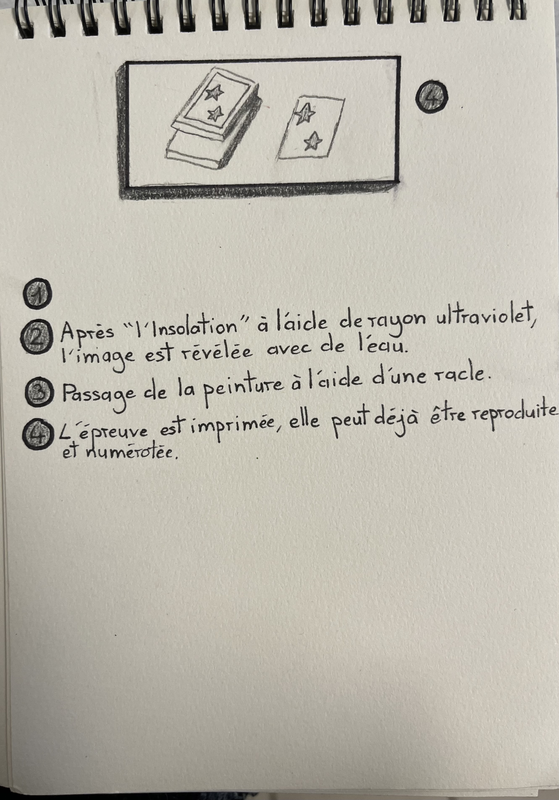 4
1
2 Après "l'Insolation" à l'aide de rayon ultraviolet,
l'image est révélée avec de l'eau.
3 Passage de la peinture à l'aide d'une racle.
4 L'épreuve est imprimée, elle peut déjà être reproduite
et numérotée.